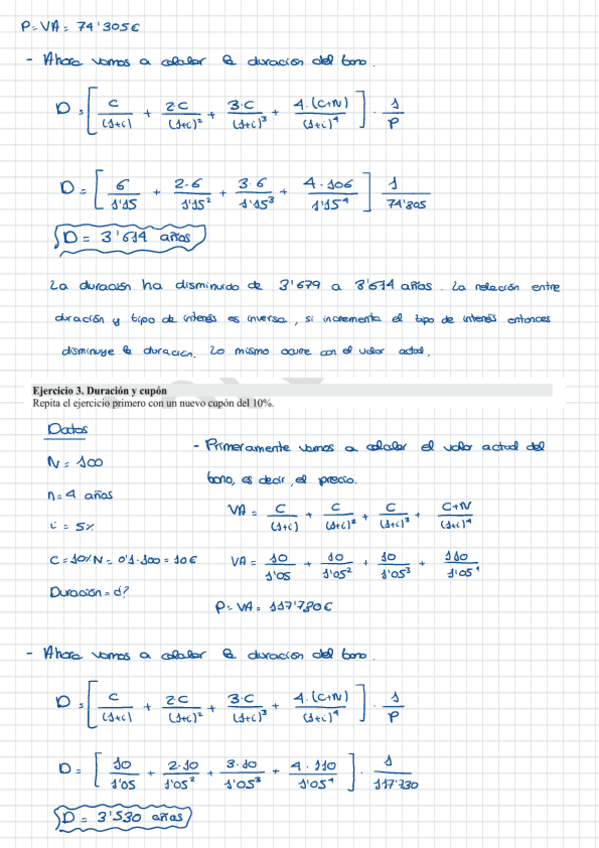 P=VA= 74'305€
- Ahora vamos a calcular la duración del bono.
D = [ C/(1+i) + 2·C/(1+i)² + 3·C/(1+i)³ + 4·(C+N)/(1+i)⁴ ] · 1/P
D = [ 6/1'15 + 2·6/1'15² + 3·6/1'15³ + 4·106/1'15⁴ ] 1/74'305
D = 3'614 años
La duración ha disminuido de 3'679 a 3'614 años. La relación entre
duración y tipo de interés es inversa, si incrementa el tipo de interés entonces
disminuye la duración. Lo mismo ocurre con el valor actual.
Ejercicio 3. Duración y cupón
Repita el ejercicio primero con un nuevo cupón del 10%.
Datos
N = 100
n = 4 años
i = 5%
C = 10%N = 0'1·100 = 10€
Duración = d?
- Primeramente vamos a calcular el valor actual del
bono, es decir, el precio.
VA = C/(1+i) + C/(1+i)² + C/(1+i)³ + C+N/(1+i)⁴
VA = 10/1'05 + 10/1'05² + 10/1'05³ + 110/1'05⁴
P=VA= 117'730€
- Ahora vamos a calcular la duración del bono.
D = [ C/(1+i) + 2C/(1+i)² + 3·C/(1+i)³ + 4·(C+N)/(1+i)⁴ ] · 1/P
D = [ 10/1'05 + 2·10/1'05² + 3·10/1'05³ + 4·110/1'05⁴ ] · 1/117'730
D = 3'530 años